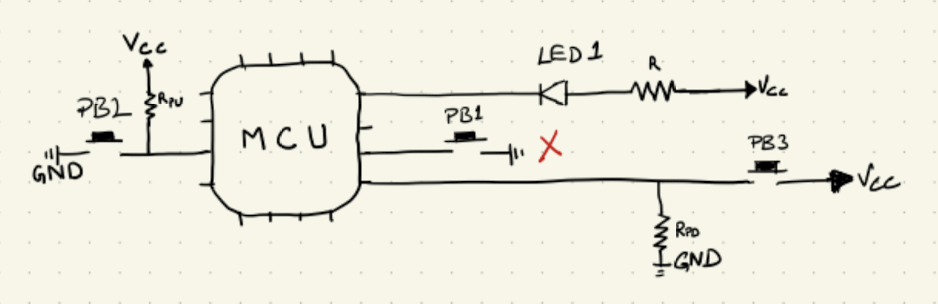 VCC
RPU
PB2
GND
MCU
LED1
R
VCC
PB1
X
PB3
VCC
RPD
GND